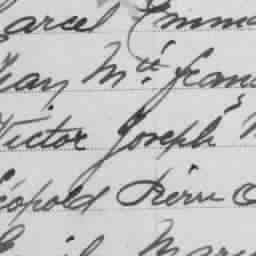 arcel Emma
ean Mtt fran
Victor Joseph
éopold Pierre O
Mar